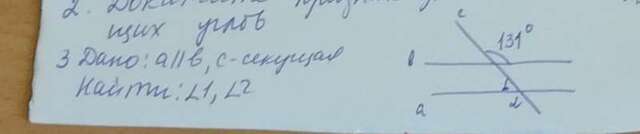 2. Докажите призна
щих углов
3 Дано: a∥b, c-секущая
Найти: ∠1, ∠2
c
131°
b
1
a
2